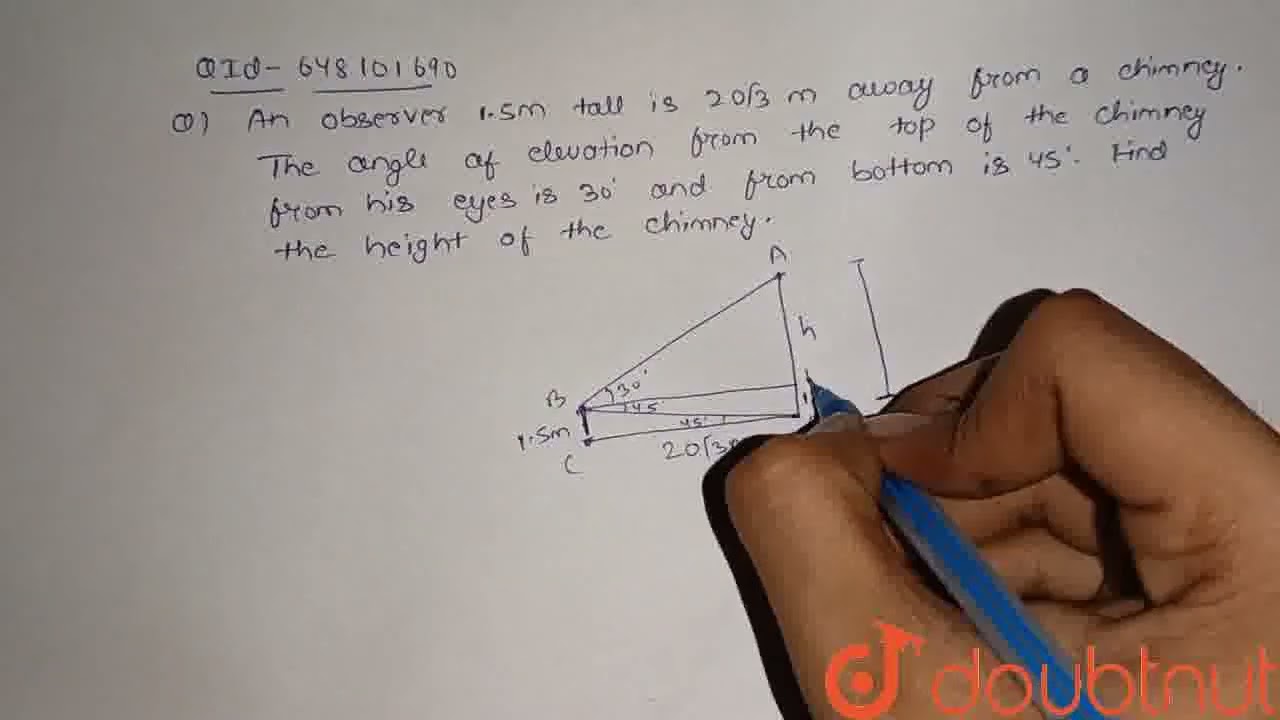 QId- 648101690
Q) An observer 1.5m tall is 20√3 m away from a chimney.
The angle of elevation from the top of the chimney
from his eyes is 30° and from bottom is 45°. Find
the height of the chimney.
A
h
30°
B
45°
45°
1.5m
20√3
C
doubtnut